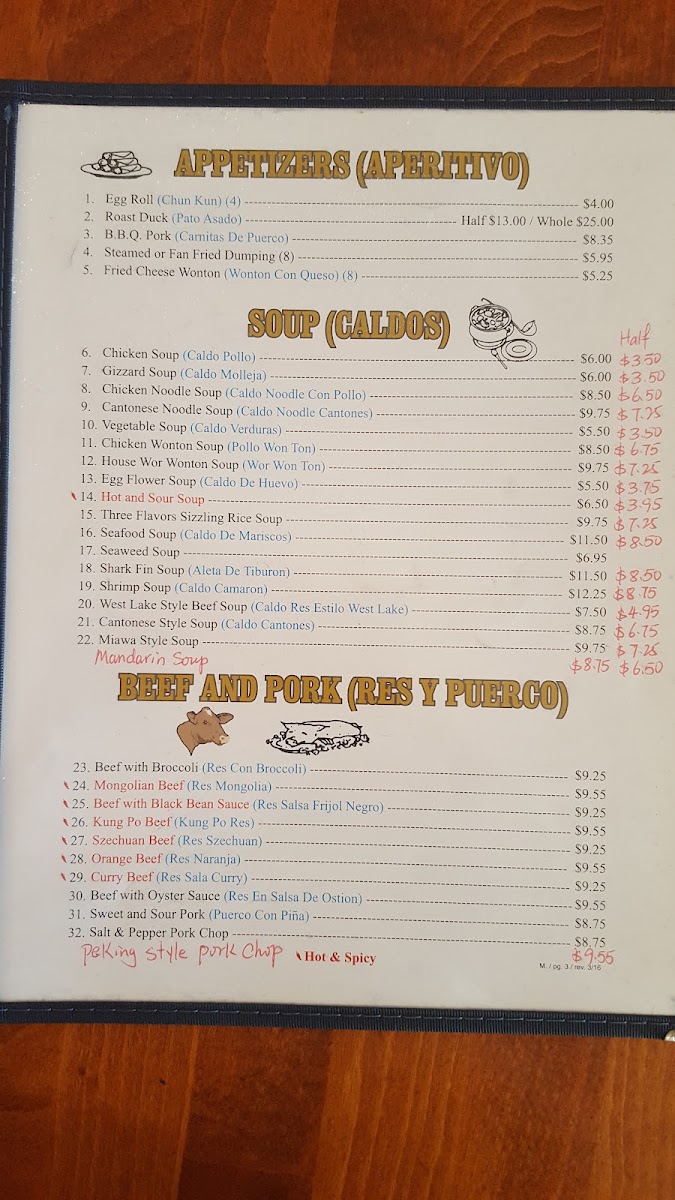 APPETIZERS (APERITIVO)
1. Egg Roll (Chun Kun) (4) $4.00
2. Roast Duck (Pato Asado) Half $13.00 / Whole $25.00
3. B.B.Q. Pork (Carnitas De Puerco) $8.35
4. Steamed or Fan Fried Dumping (8) $5.95
5. Fried Cheese Wonton (Wonton Con Queso) (8) $5.25
SOUP (CALDOS)
Half
6. Chicken Soup (Caldo Pollo) $6.00 $3.50
7. Gizzard Soup (Caldo Molleja) $6.00 $3.50
8. Chicken Noodle Soup (Caldo Noodle Con Pollo) $8.50 $6.50
9. Cantonese Noodle Soup (Caldo Noodle Cantones) $9.75 $7.25
10. Vegetable Soup (Caldo Verduras) $5.50 $3.50
11. Chicken Wonton Soup (Pollo Won Ton) $8.50 $6.75
12. House Wor Wonton Soup (Wor Won Ton) $9.75 $7.25
13. Egg Flower Soup (Caldo De Huevo) $5.50 $3.75
14. Hot and Sour Soup $6.50 $3.95
15. Three Flavors Sizzling Rice Soup $9.75 $7.25
16. Seafood Soup (Caldo De Mariscos) $11.50 $8.50
17. Seaweed Soup $6.95
18. Shark Fin Soup (Aleta De Tiburon) $11.50 $8.50
19. Shrimp Soup (Caldo Camaron) $12.25 $8.75
20. West Lake Style Beef Soup (Caldo Res Estilo West Lake) $7.50 $4.95
21. Cantonese Style Soup (Caldo Cantones) $8.75 $6.75
22. Miawa Style Soup $9.75 $7.25
Mandarin Soup $8.75 $6.50
BEEF AND PORK (RES Y PUERCO)
23. Beef with Broccoli (Res Con Broccoli) $9.25
24. Mongolian Beef (Res Mongolia) $9.55
25. Beef with Black Bean Sauce (Res Salsa Frijol Negro) $9.25
26. Kung Po Beef (Kung Po Res) $9.55
27. Szechuan Beef (Res Szechuan) $9.25
28. Orange Beef (Res Naranja) $9.55
29. Curry Beef (Res Sala Curry) $9.25
30. Beef with Oyster Sauce (Res En Salsa De Ostion) $9.55
31. Sweet and Sour Pork (Puerco Con Piña) $8.75
32. Salt & Pepper Pork Chop $8.75
Peking style pork Chop $9.55
Hot & Spicy
M. / pg. 3 / rev. 3/16